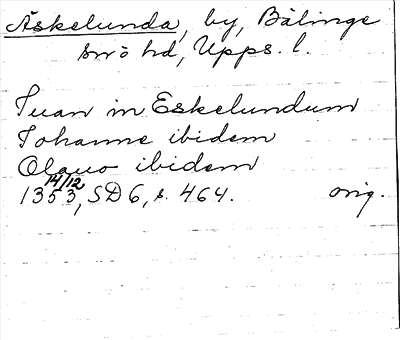 Äskelunda, by, Bälinge
snö hd, Upps. l.
Tuan in Eskelundum
Johanne ibidem
Olauo ibidem
1353 14/12, SD 6, s. 464. orig.